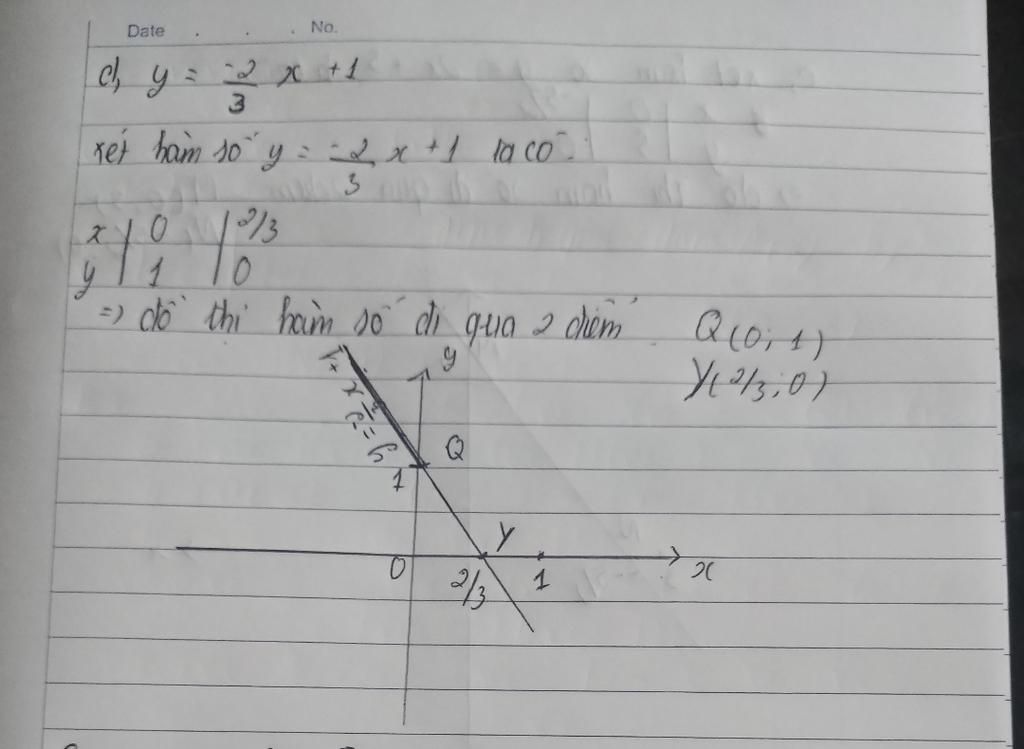 Date . . . No.
d, y = -2/3 x + 1
xét hàm số y = -2/3 x + 1 ta có:
x | 0 | 2/3
y | 1 | 0
=> đồ thị hàm số đi qua 2 điểm Q(0; 1)
Y(2/3; 0)
y
y = -2/3 x + 1
Q
1
Y
0
2/3
1
x